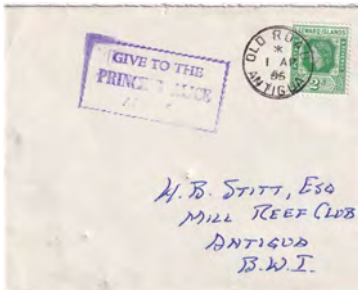 GIVE TO THE
PRINCESS ALICE
OLD ROAD
*
1 AP
55
ANTIGUA
LEEWARD ISLANDS
2
H. B. STITT, ESQ
MILL REEF CLUB
ANTIGUA
B.W.I.